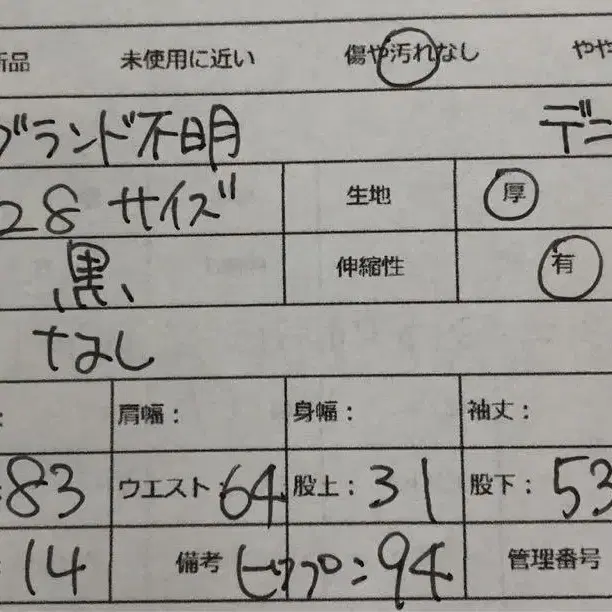 新品 未使用に近い 傷や汚れなし やや
ブランド不明 デニ
28サイズ 生地 厚
黒 伸縮性 有
なし
: 肩幅: 身幅: 袖丈:
:83 ウエスト:64 股上:31 股下:53
:14 備考 ヒップ:94 管理番号